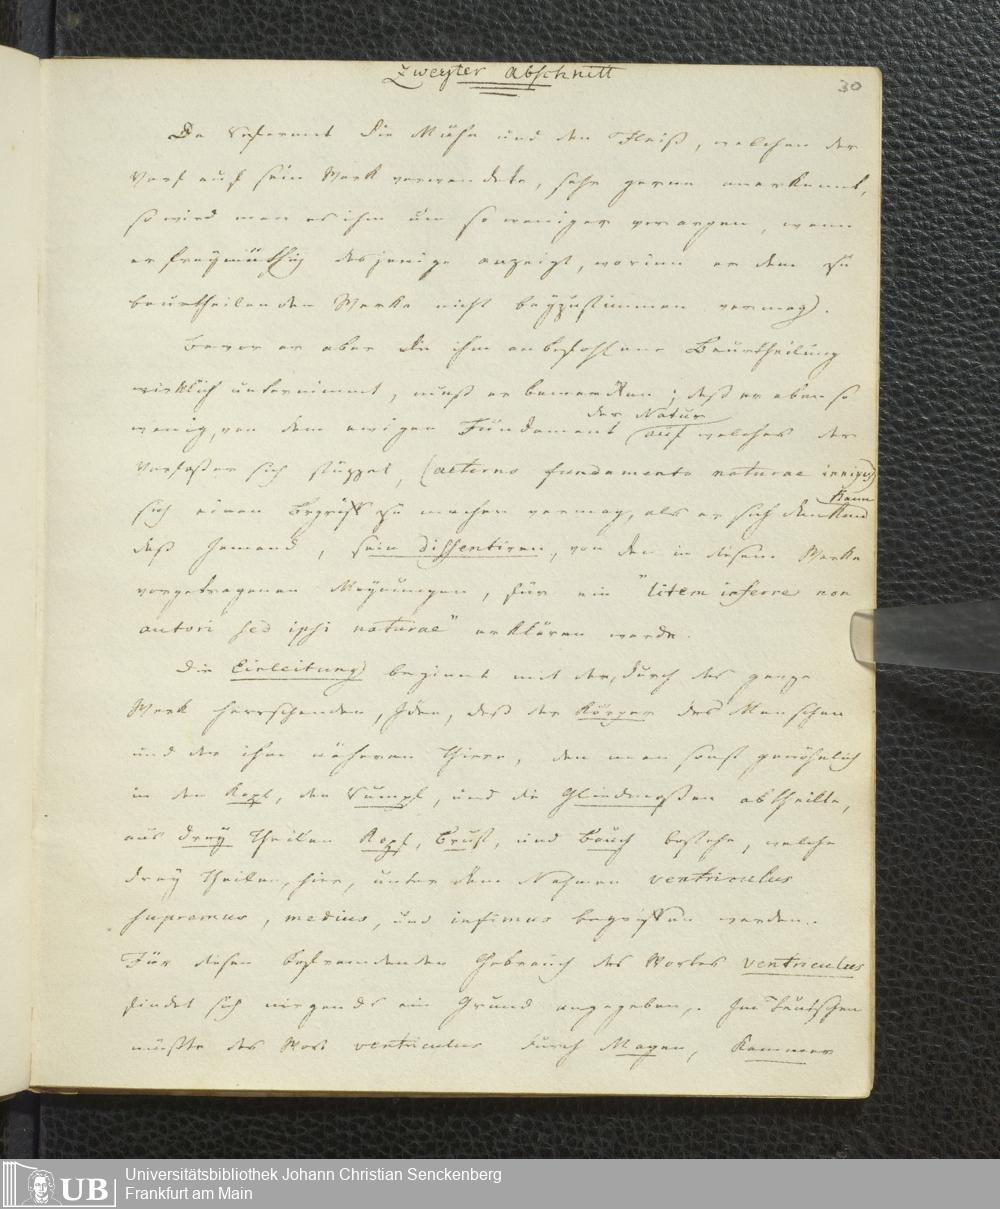 Zweyter Abschnitt
30
Da Referent die Mühe und den Fleiß, welchen der
Verf auf sein Werk verwendete, sehr gerne anerkennt,
so wird man es ihm um so weniger verargen, wenn
er freymüthig dasjenige anzeigt, worinn er dem zu
beurtheilenden Werke nicht beyzustimmen vermag.
Bevor er aber die ihm anbefohlene Beurtheilung
wirklich unternimmt, muß er bemerken; daß er eben so
der Natur
wenig, von dem ewigen Fundament auf welches der
Verfaßer sich stüzzet, (aeterno fundamento naturae innixus)
kann
sich einen Begriff zu machen vermag, als er sich denken
daß Jemand, sein dissentiren, von den in diesem Werke
vorgetragenen Meynungen, für ein "litem inferre non
autori sed ipsi naturae" erklären werde.
Die Einleitung beginnt mit der, durch das ganze
Werk herrschenden, Idee, daß der Körper des Menschen
und der ihm näheren Thiere, den man sonst gewöhnlich
in den Kopf, den Rumpf, und die Gliedmaßen abtheilte,
aus drey Theilen Kopf, Brust, und Bauch bestehe, welche
drey Theile, hier, unter dem Nahmen ventriculus
supremus, medius, und infimus begriffen werden.
Für diesen befremdenden Gebrauch des Wortes ventriculus
findet sich nirgends ein Grund angegeben. Im Teutschen
müßte das Wort ventriculus durch Magen, Kammer
Universitätsbibliothek Johann Christian Senckenberg
Frankfurt am Main
UB